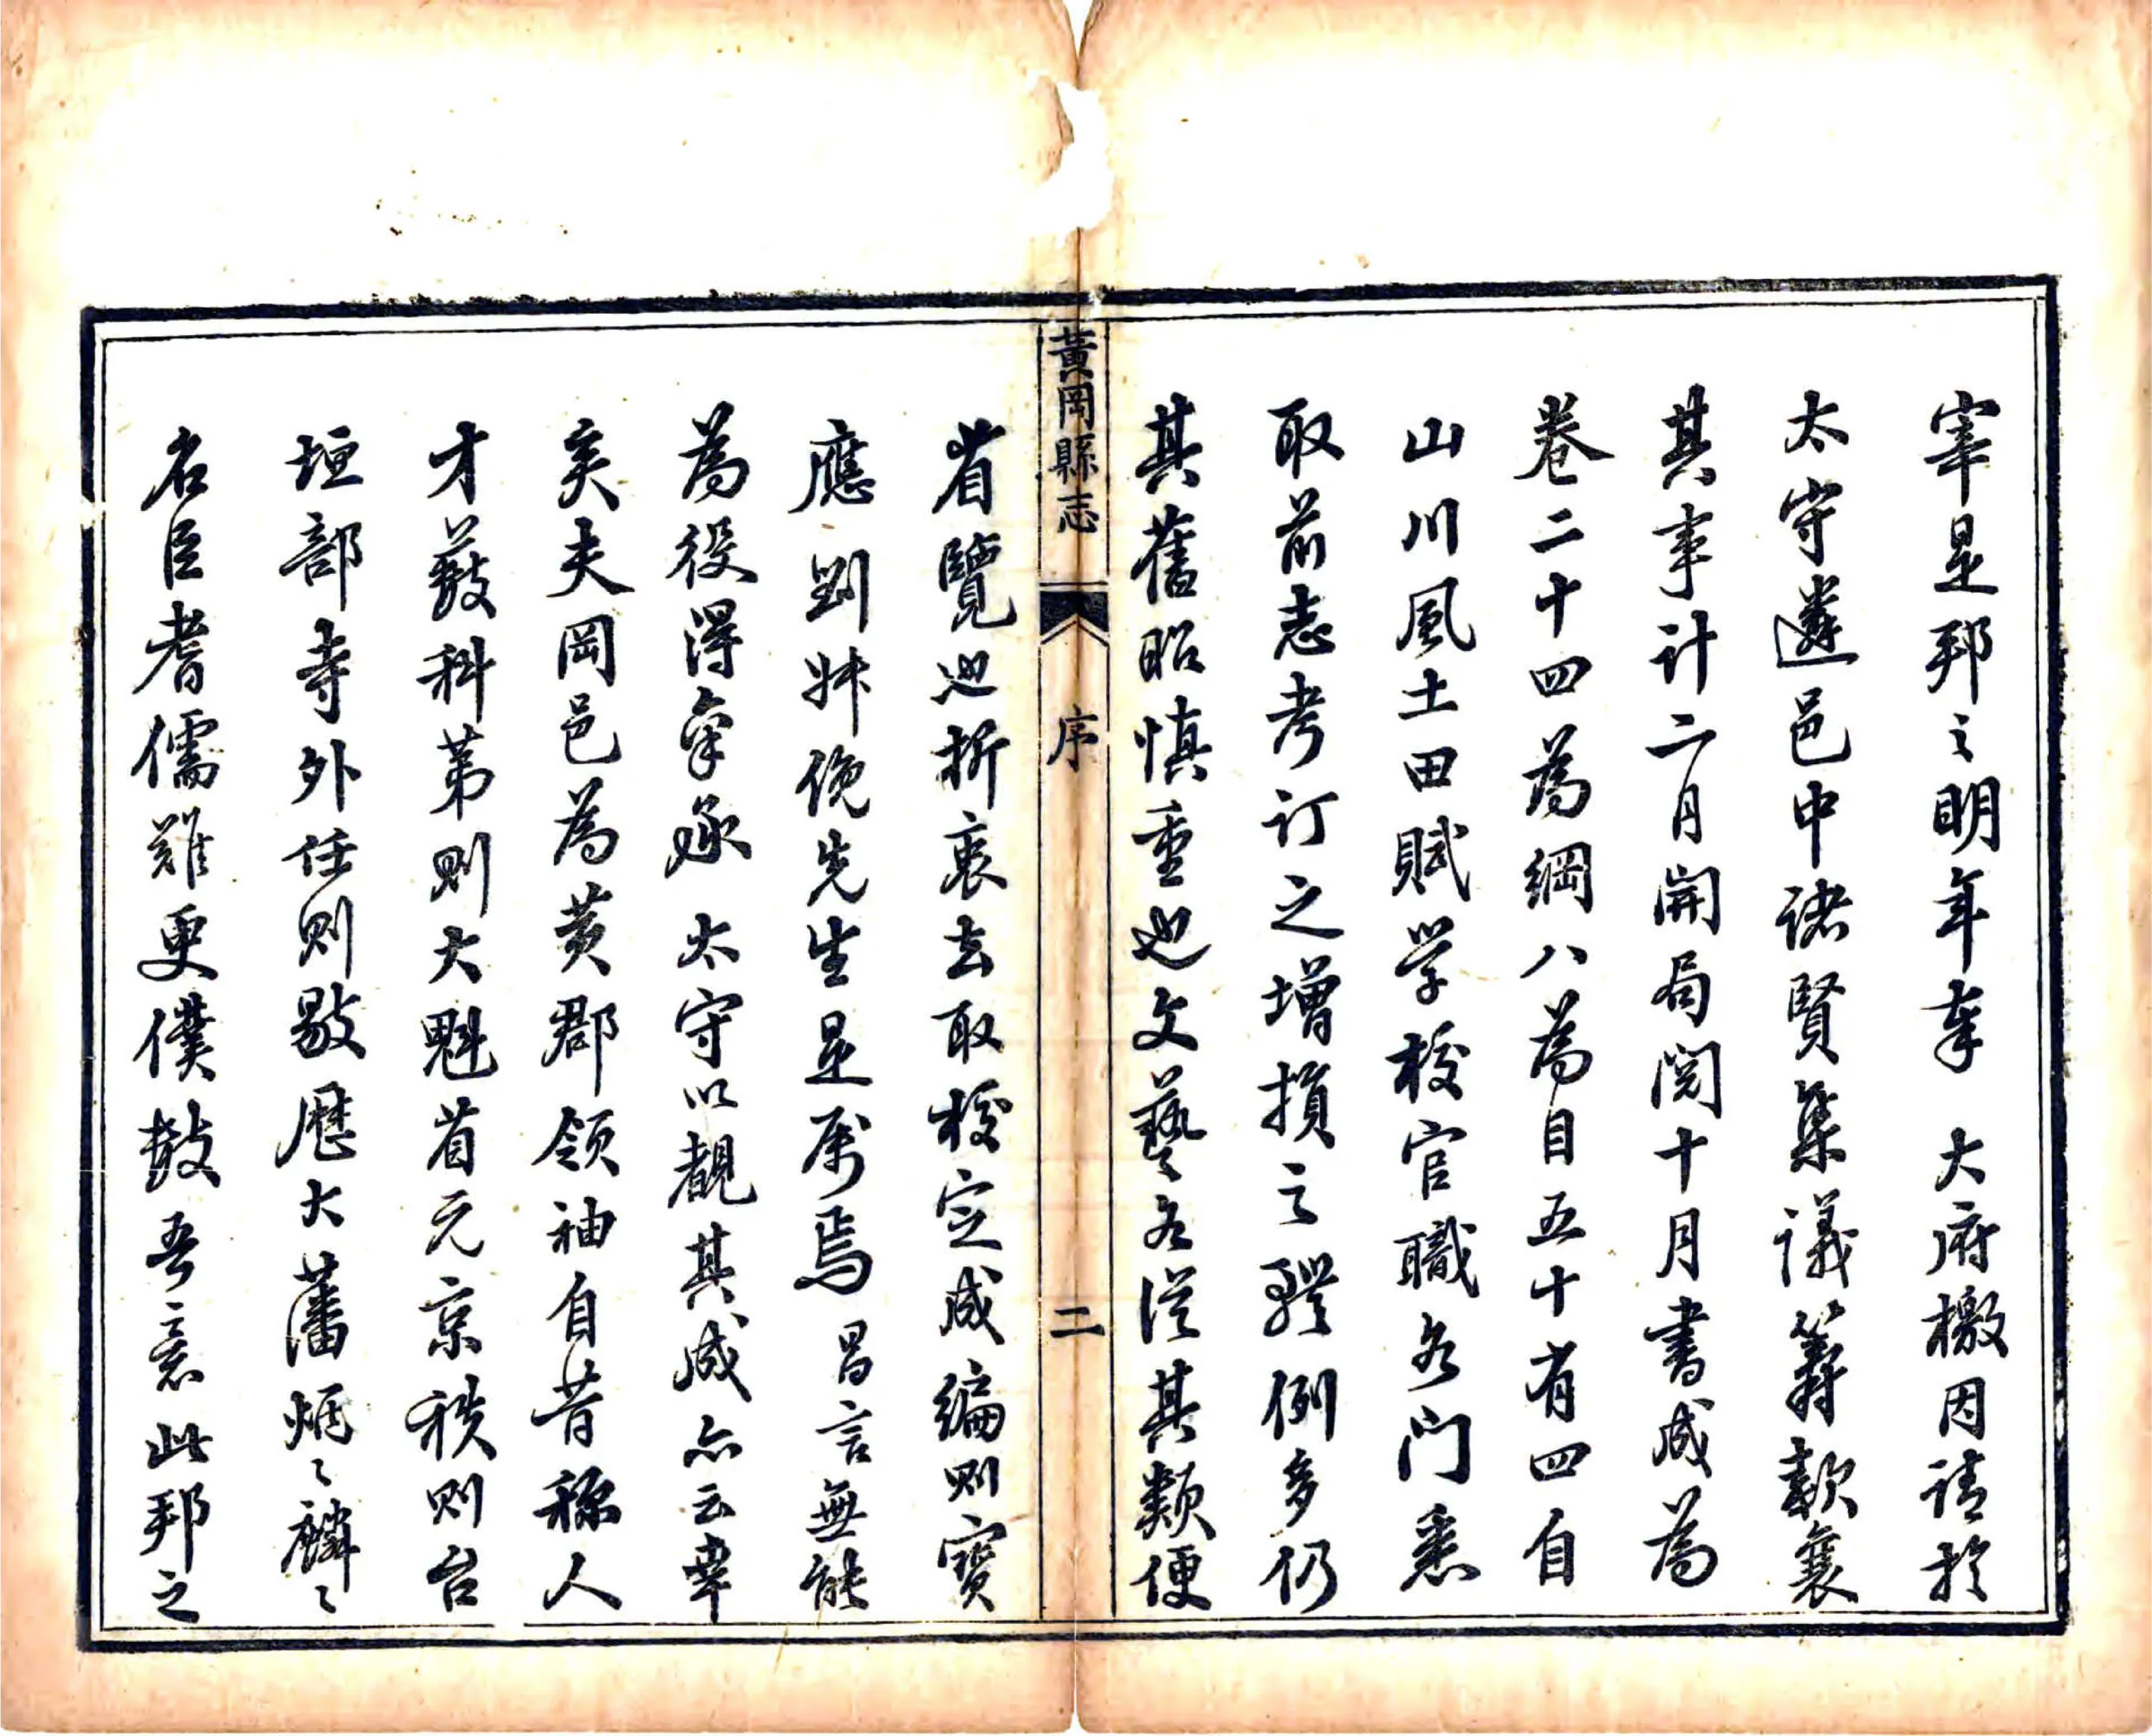 宰是邦之明年奉 大府檄因請於
太守遴邑中諸賢集議籌款襄
其事計二月開局閱十月書成為
卷二十四為綱八為目五十有四自
山川風土田賦學校官職各門悉
取前志考訂之增損之體例多仍
其舊昭慎重也文藝各從其類便
黃岡縣志 序 二
省覽也折衷去取校定成編則寶
應劉姊俛先生是屬焉昌言無能
為役得禀承 太守以觀其成亦云幸
矣夫岡邑為黃郡領袖自昔稱人
才藪科第則大魁省元京秩則台
垣部寺外任則敭歷大藩炳炳麟麟
名臣耆儒難更僕數吾意此邦之